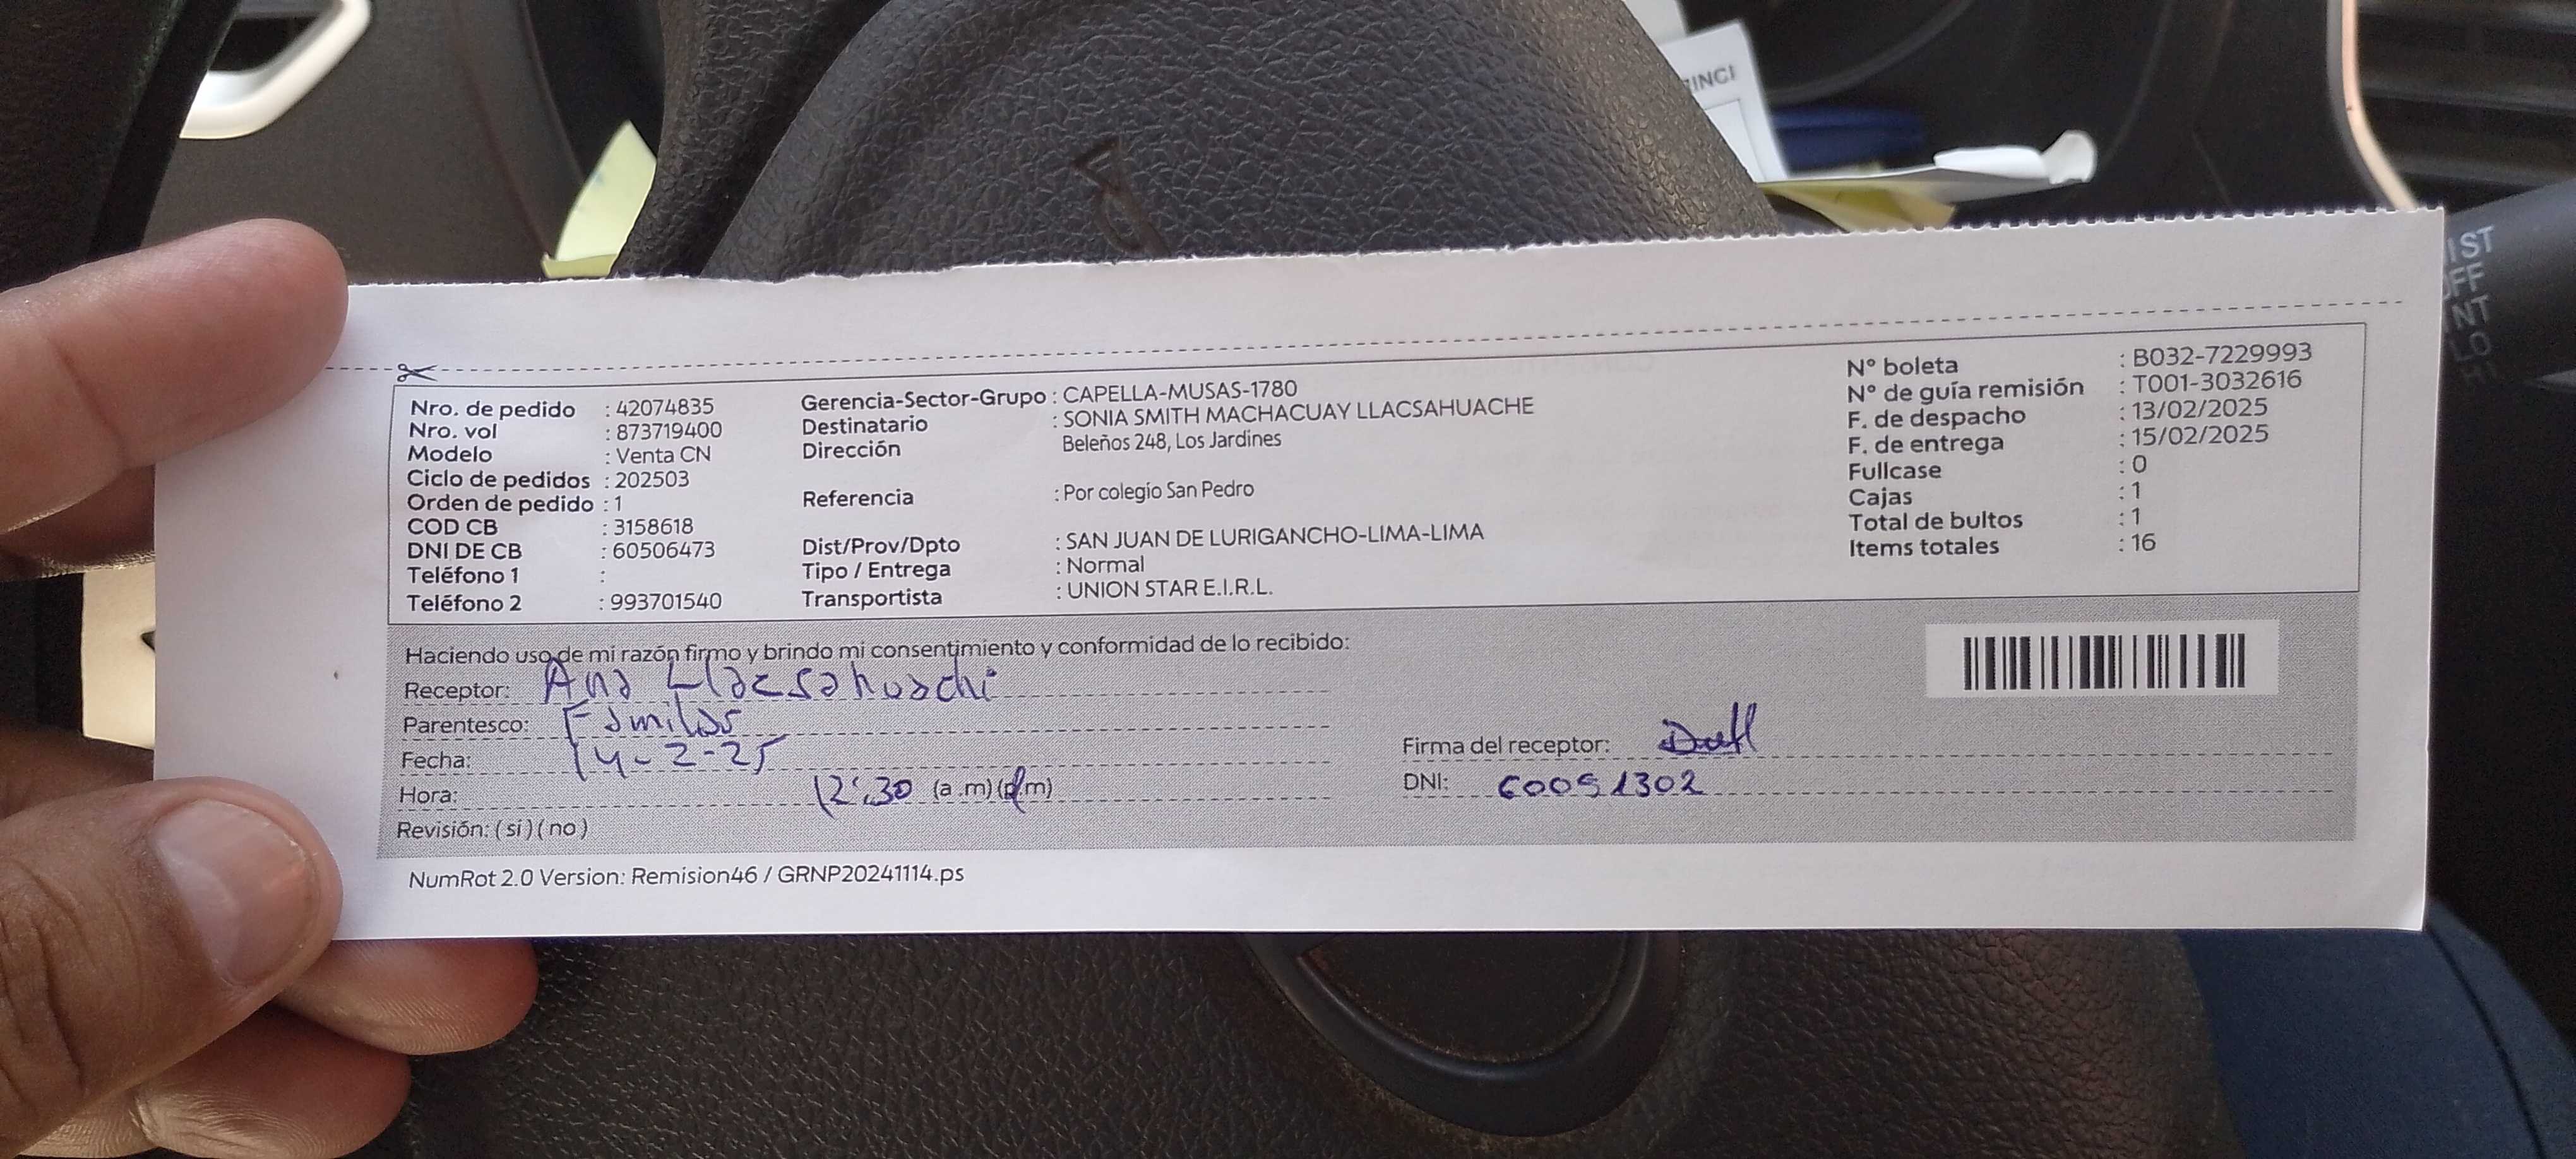 INCI
IST
OFF
INT
LO
Nro. de pedido : 42074835
Nro. vol : 873719400
Modelo : Venta CN
Ciclo de pedidos : 202503
Orden de pedido : 1
COD CB : 3158618
DNI DE CB : 60506473
Teléfono 1 :
Teléfono 2 : 993701540
Gerencia-Sector-Grupo : CAPELLA-MUSAS-1780
Destinatario : SONIA SMITH MACHACUAY LLACSAHUACHE
Dirección Beleños 248, Los Jardines
Referencia : Por colegio San Pedro
Dist/Prov/Dpto : SAN JUAN DE LURIGANCHO-LIMA-LIMA
Tipo / Entrega : Normal
Transportista : UNION STAR E.I.R.L.
N° boleta : B032-7229993
N° de guía remisión : T001-3032616
F. de despacho : 13/02/2025
F. de entrega : 15/02/2025
Fullcase : 0
Cajas : 1
Total de bultos : 1
Items totales : 16
Haciendo uso de mi razón firmo y brindo mi consentimiento y conformidad de lo recibido:
Receptor: Ana Llacsahuachi
Parentesco: Familiar
Fecha: 14-2-25
Hora: 12:30 (a.m)(p.m)
Revisión: (si)(no)
Firma del receptor:
DNI: 60051302
NumRot 2.0 Version: Remision46 / GRNP20241114.ps